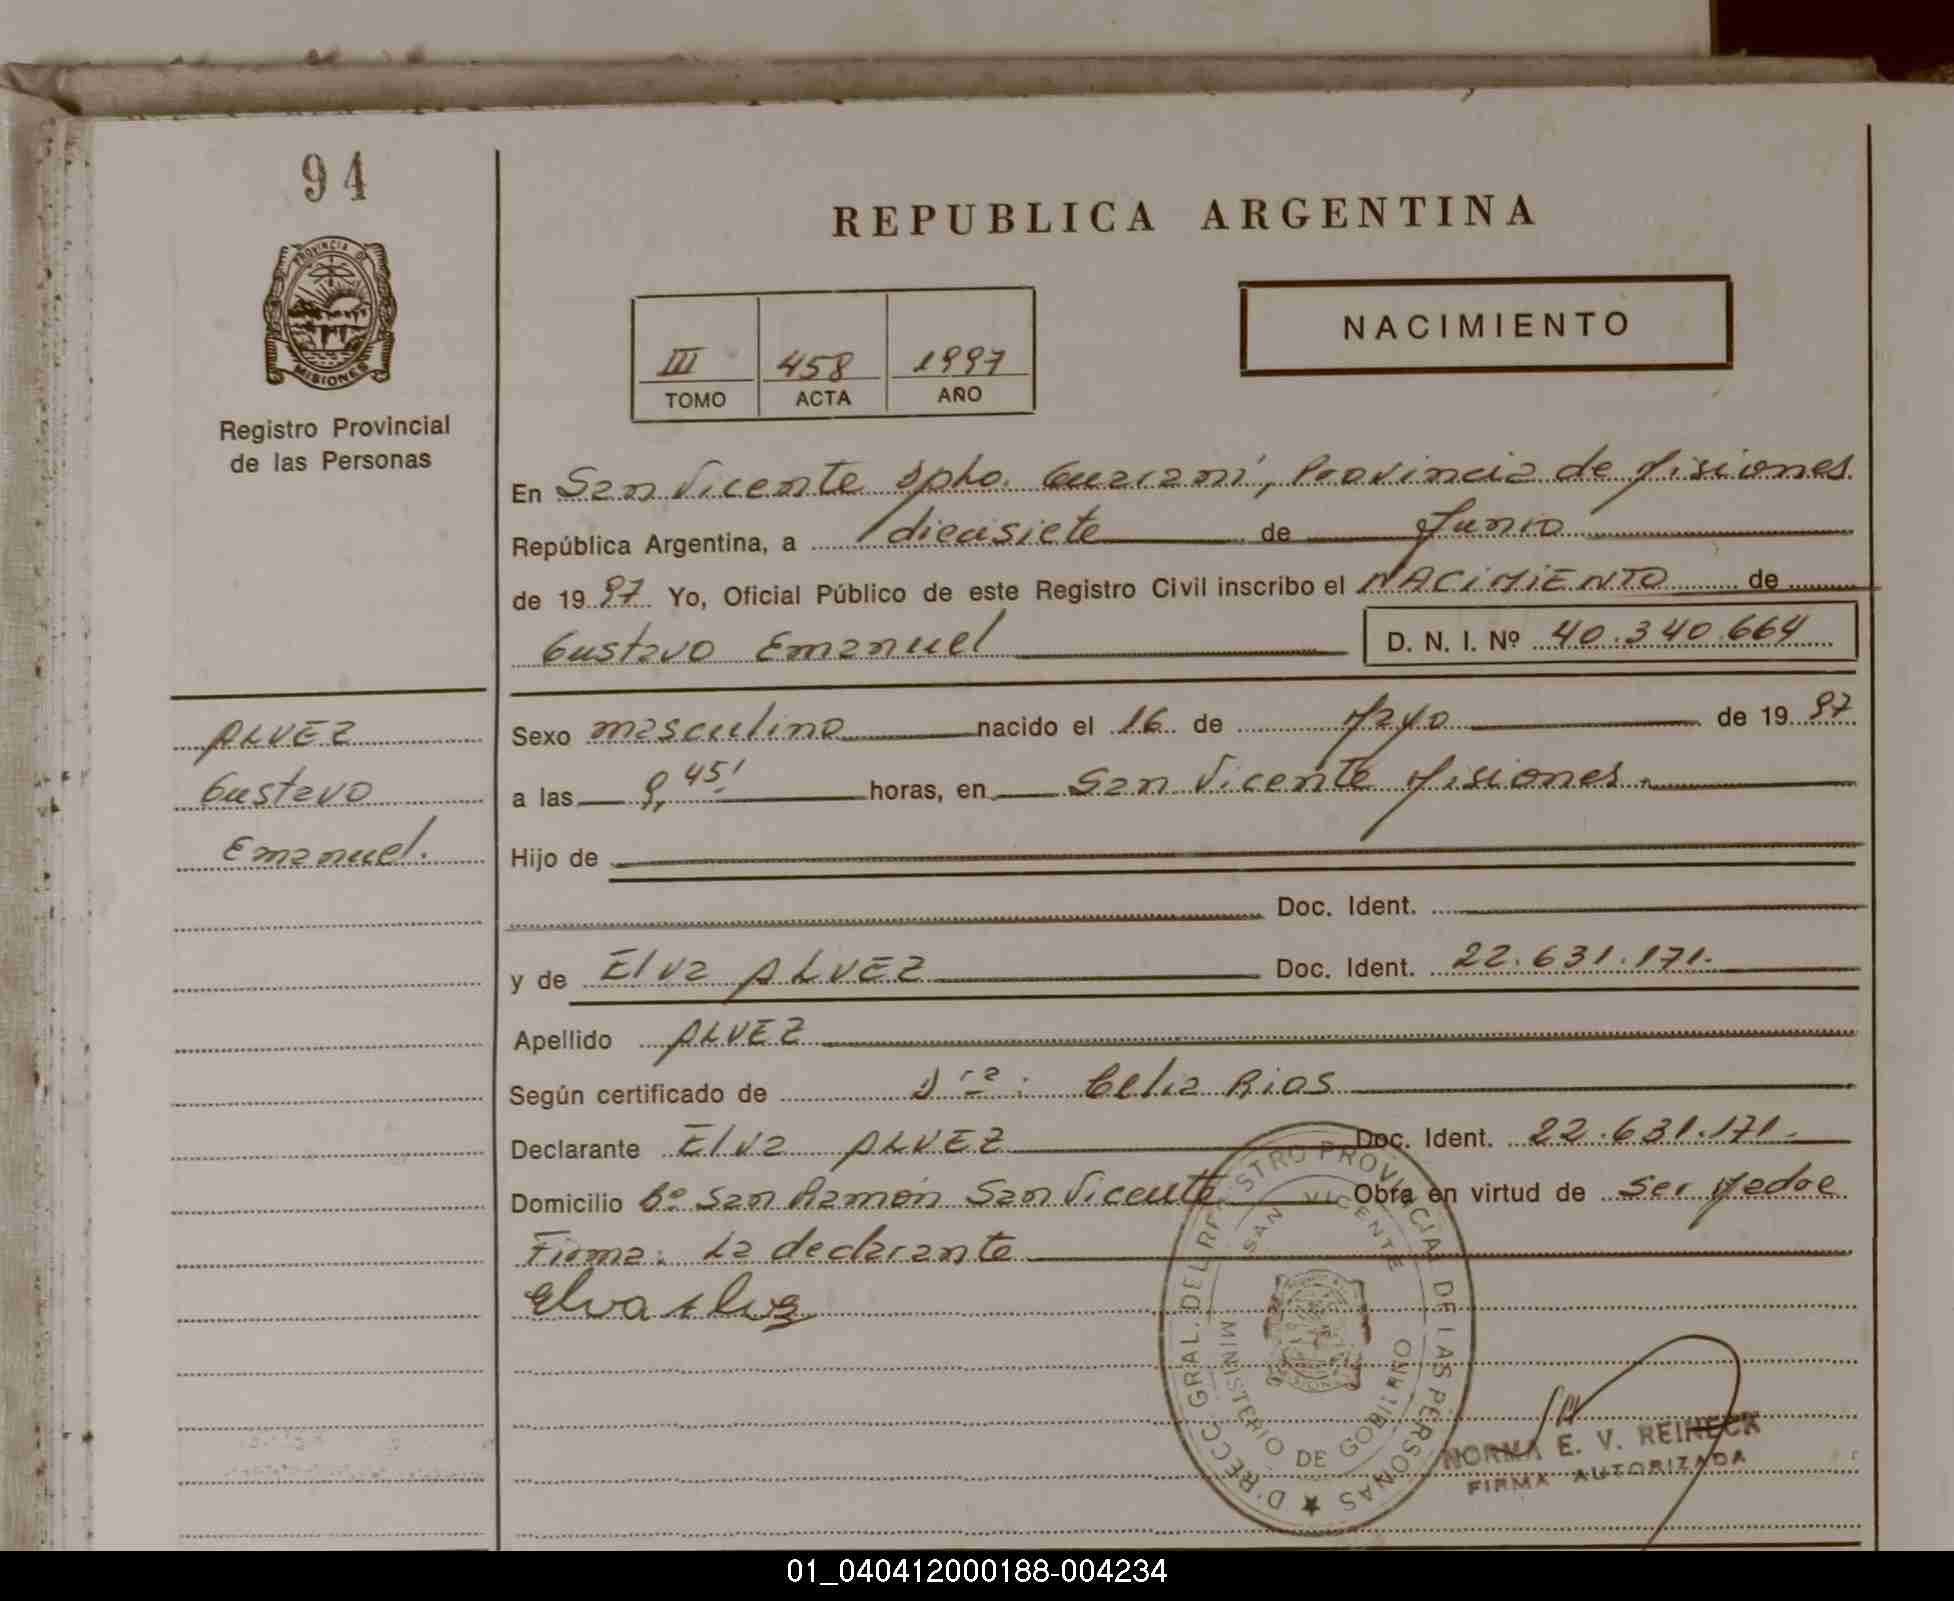 94
PROVINCIA DE
MISIONES
Registro Provincial
de las Personas
REPUBLICA ARGENTINA
III 458 1997
TOMO ACTA AÑO
NACIMIENTO
En San Vicente Dpto. Guaraní, Provincia de Misiones
República Argentina, a diecisiete de Junio
de 1997 Yo, Oficial Público de este Registro Civil inscribo el NACIMIENTO de
Gustavo Emanuel D. N. I. Nº 40.340.664
ALVEZ
Gustavo
Emanuel.
Sexo masculino nacido el 16 de Mayo de 1997
a las 9,45' horas, en San Vicente Misiones.
Hijo de
Doc. Ident.
y de Elva ALVEZ Doc. Ident. 22.631.171.
Apellido ALVEZ
Según certificado de Dra: Celia Rios
Declarante Elva ALVEZ Doc. Ident. 22.631.171.
Domicilio Bº San Ramón San Vicente Obra en virtud de ser Madre
Firma: La declarante
Elva Alvez
DIRECC. GRAL. DEL REGISTRO PROVINCIAL DE LAS PERSONAS
SAN VICENTE
MINISTERIO DE GOBIERNO
NORMA E. V. REINECK
FIRMA AUTORIZADA
01_040412000188-004234